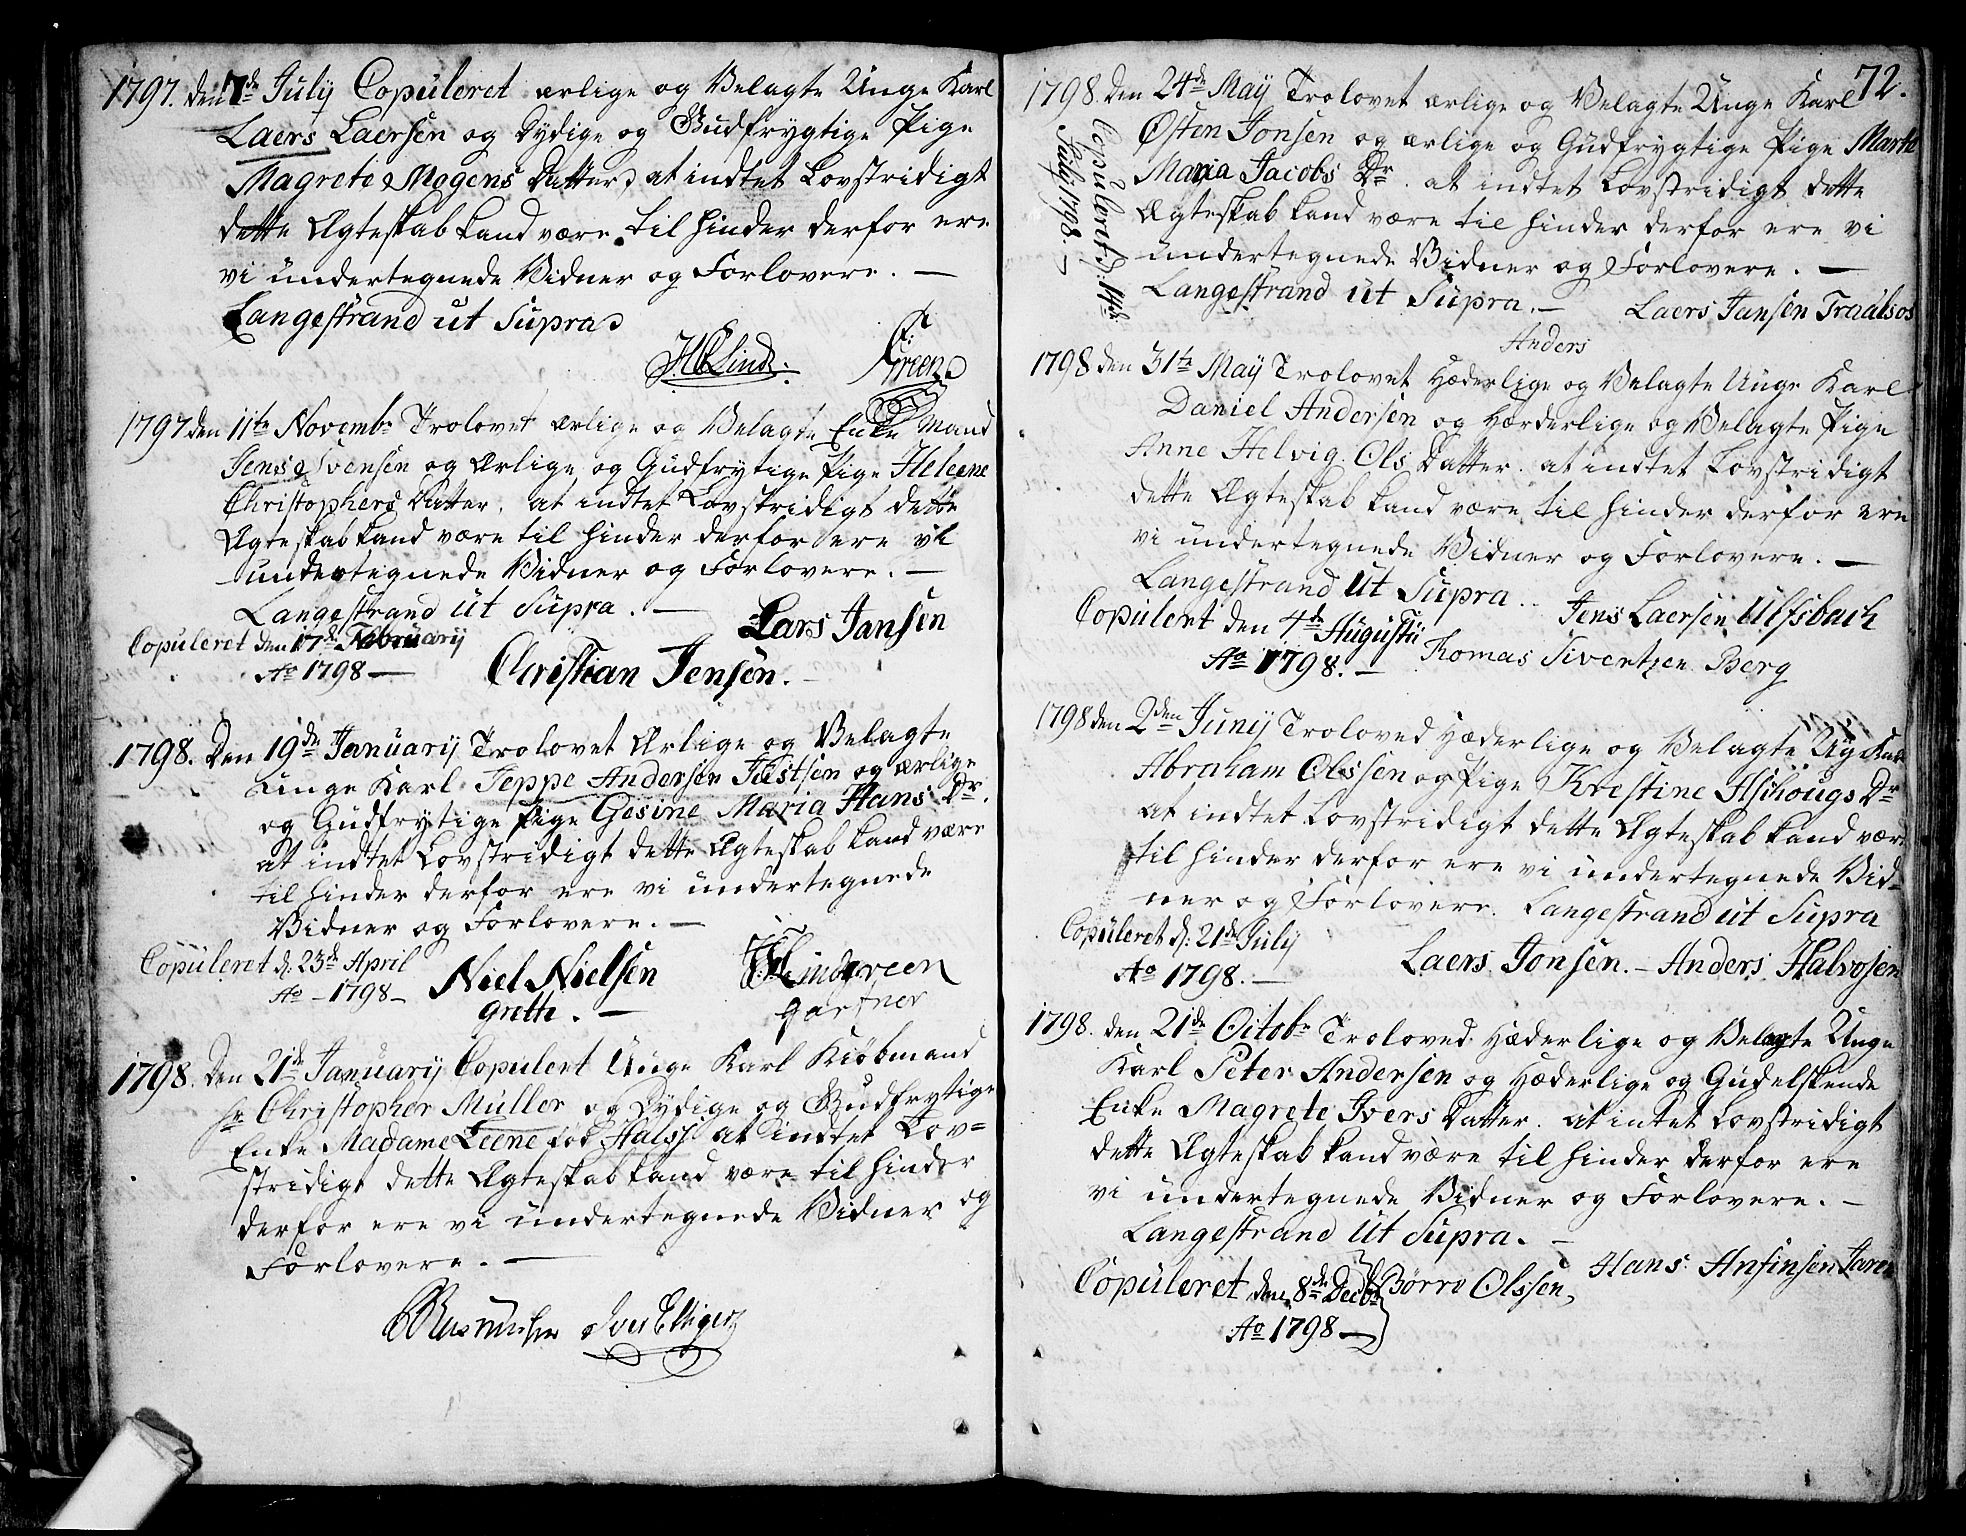 1797. den 7de July Copuleret ærlige og Velagte Unge Karl
Laers Laersen og Dydige og Gudfrygtige Pige
Magrete Mogens Datter, at indtet Lovstridigt
dette Ægteskab kand være til hinder derfor ere
vi undertegnede Vidner og Forlovere. —
Langestrand ut Supra
HLind. Green
1797 den 11te Novembr Trolovet ærlige og Velagte Enke Mand
Jens Svensen og Ærlige og Gudfrytige Pige Heleene
Christophers Datter, at indtet Lovstridigt dette
Ægteskab kand være til hinder derfor ere vi
undertegnede Vidner og Forlovere. —
Langestrand ut Supra. —
Lars Jansen
Copuleret den 17de Februarij
Ao 1798 —
Christian Jensen.
1798. Den 19de Januarij Trolovet Ærlige og Velagte
unge Karl Jeppe Andersen Justsen og ærlige
og Gudfrytige Pige Gesine Maria Hans Dr.
at indtet Lovstridigt dette Ægteskab kand være
til hinder derfor ere vi undertegnede
Vidner og Forlovere. —
Copuleret d. 23de April
Ao — 1798 —
Niel Nielsen
grette. —
Lindgreen
gartner
1798. Den 21de Januarij Copulert Unge Karl Kiøbmand
Hr Christopher Müller og Dydige og Gudfrytige
Enke Madame Leene fød Halss at indtet Lov-
stridigt dette Ægteskab kand være til hinder
derfor ere vi undertegnede Vidner og
Forlovere. —
Rasmussen Iver Elligers
72.
1798. den 24de May Trolovet ærlige og Velagte Unge Karl
Østen Jonsen og ærlige og Gudfrygtige Pige Marte
Maria Jacobs Dr. at indtet Lovstridigt dette
Ægteskab kand være til hinder derfor ere vi
undertegnede Vidner og Forlovere. —
Langestrand ut Supra. —
Laers Jansen Traalsos
Anders
Copuleret d: 14de
July 1798. —
1798 den 31te May Trolovet Hæderlige og Velagte Unge Karl
Daniel Andersen og Hæderlige og Velagte Pige
Anne Helvig Ols Datter. at indtet Lovstridigt
dette Ægteskab kand være til hinder derfor ere
vi undertegnede Vidner og Forlovere. —
Langestrand ut Supra..
Jens Laersen Ulfsbach
Copulert den 4de Augustii
Ao 1798. —
Thomas Sivertzen Berg
1798 den 2den Junij Troloved Hæderlige og Velagte Ug Karl
Abraham Olssen og Pige Krestine Aschougs Dr
at indtet Lovstridigt dette Ægteskab kand være
til hinder derfor ere vi undertegnede Vid-
ner og Forlovere. Langestrand ut Supra
Copuleret d: 21de July
Ao 1798. —
Laers Jonsen. — Anders Halvosen
1798. den 21de Octobr Troloved Hæderlige og Velagte Unge
Karl Peter Andersen og Hæderlige og Gudelskende
Enke Magrete Ivers Datter. at intet Lovstridigt
dette Ægteskab kand være til hinder derfor ere
vi undertegnede Vidner og Forlovere. —
Langestrand ut Supra. —
Hans Ansinsen
Copuleret den 8de Decbr
Ao 1798 —
Børre Olssen,